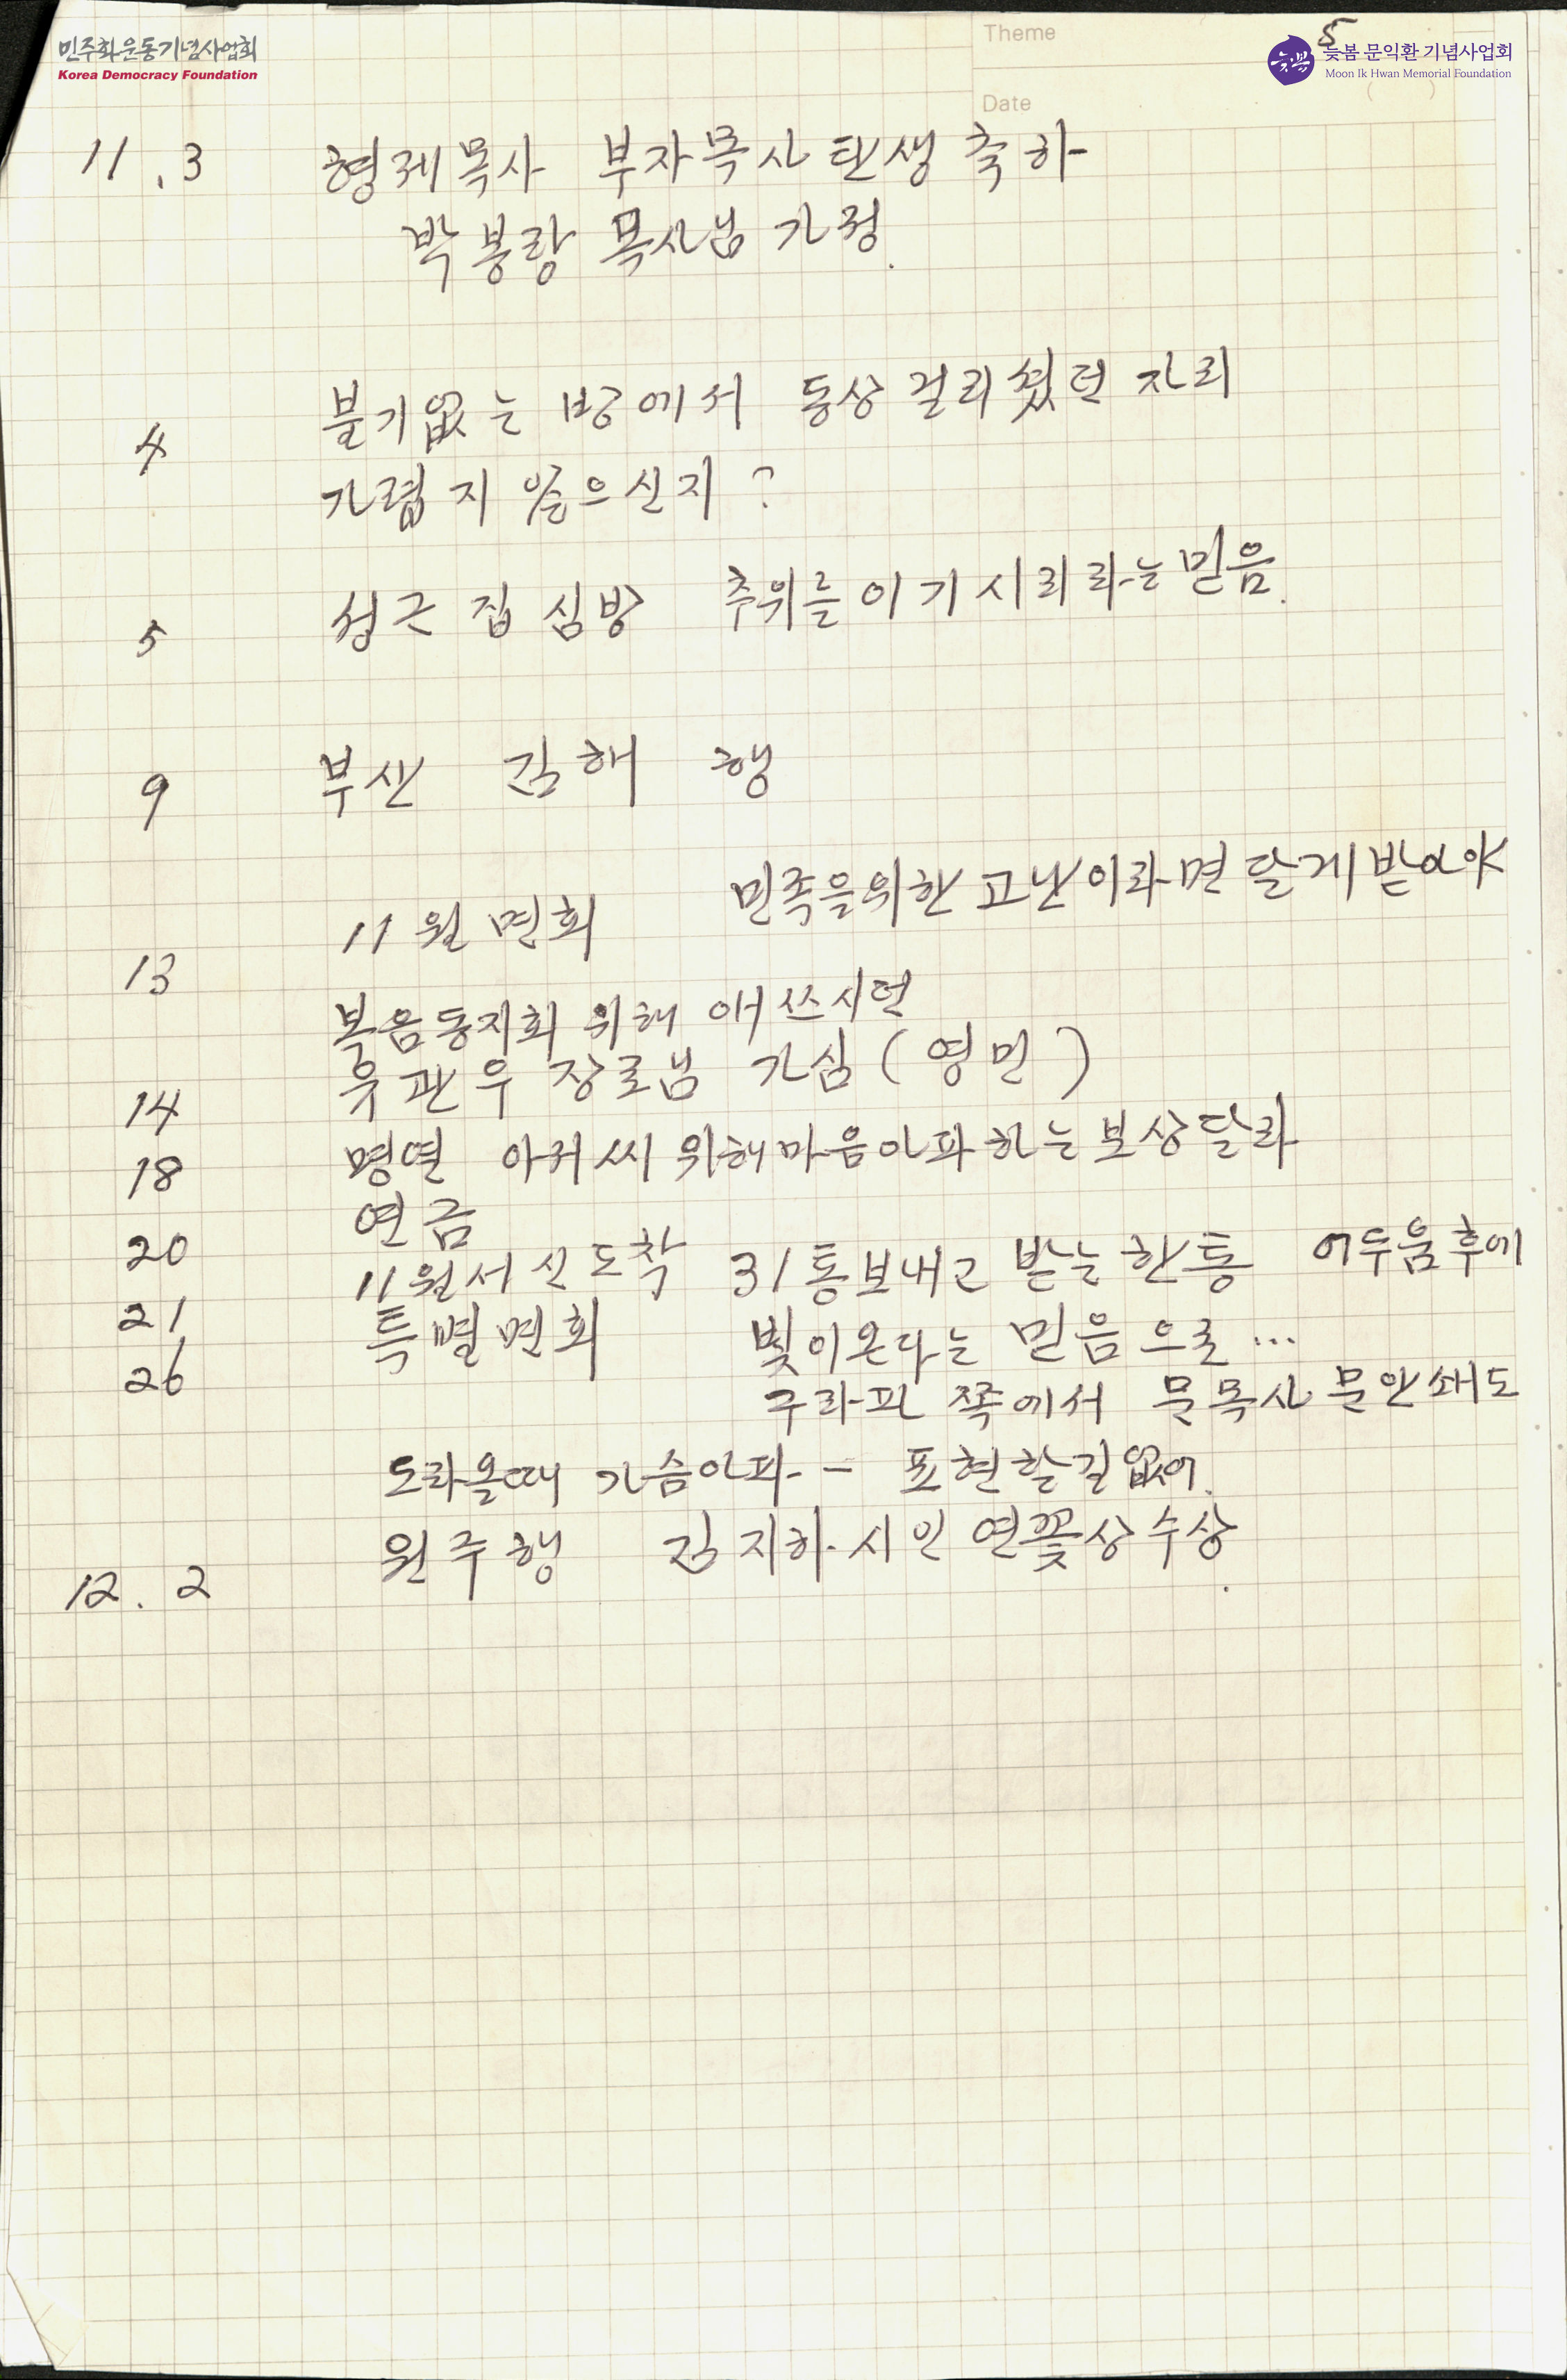 민주화운동기념사업회
Korea Democracy Foundation
Theme
5
늦봄 문익환 기념사업회
Moon Ik Hwan Memorial Foundation
Date ( )
11.3 형제목사 부자목사 탄생 축하
박봉랑 목사님 가정.
불기없는 방에서 동상 걸리셨던 자리
4
가렵지 않으신지?
5 성근 집 심방 추위를 이기시리라는 믿음.
9 부산 김해 행
11월 면회 민족을위한 고난이라면 달게받아야
13
복음동지회 위해 애쓰시던
14 유관우 장로님 가심 (영민)
18 명연 아저씨 위해마음아파하는보상달라
20 연금
21 11월서신도착 31통보내고 받는한통 어두움후에
26 특별면회 빛이온다는 믿음으로...
구라파 쪽에서 문목사 문안쇄도
도라올때 가슴아파 - 표현할길없어.
12.2 원주행 김지하 시인 연꽃상수상.